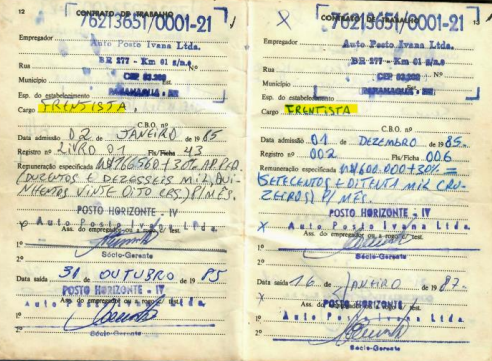 12
CONTRATO DE TRABALHO
76213651/0001-21
Empregador
Auto Posto Ivana Ltda.
BR 277 - Km 01 s/n.o
Rua Nº
CEP 83.200
Município Est.
PARANAGUÁ - PR
Esp. do estabelecimento
Cargo FRENTISTA.
C.B.O. nº
Data admissão 02 de JANEIRO de 1985
Registro nº LIVRO 01 Fls/Ficha 43
Remuneração especificada
VINTE OITO CRS.) P/ MÊS.
POSTO HORIZONTE - IV
Auto Posto Ivana Ltda.
Ass. do empregador ou a rogo c/ test.
1º
Sócio-Gerente
2º
Data saída 31 de OUTUBRO de 1985
POSTO HORIZONTE - IV
Auto Posto Ivana Ltda.
1º
2º Sócio-Gerente
CONTRATO DE TRABALHO
76213651/0001-21
Empregador
Auto Posto Ivana Ltda.
BR 277 - Km 01 s/n.o
Rua Nº
CEP 83.200
Município Est.
PARANAGUÁ - PR
Esp. do estabelecimento
Cargo FRENTISTA
C.B.O. nº
Data admissão 01 de DEZEMBRO de 1985.
Registro nº 002 Fls/Ficha 006
Remuneração especificada
P/ MÊS.
POSTO HORIZONTE - IV
X Auto Posto Ivana Ltda.
Ass. do empregador ou a rogo c/ test.
1º
2º Sócio-Gerente
Data saída 16 de JANEIRO de 1987.
POSTO HORIZONTE - IV
1º Auto Posto Ivana Ltda.
2º
Sócio-Gerente